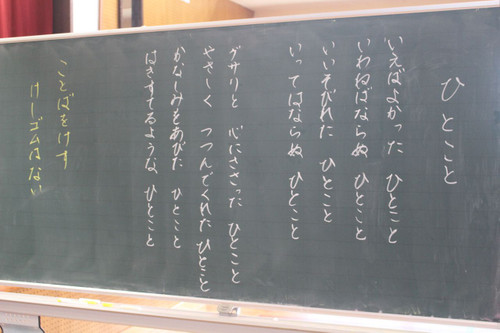 ひとこと
いえばよかった ひとこと
いわねばならぬ ひとこと
いいそびれた ひとこと
いってはならぬ ひとこと
グサリと 心にささった ひとこと
やさしく つつんでくれた ひとこと
かなしみをあびた ひとこと
はきすてるような ひとこと
ことばをけす
けしゴムはない